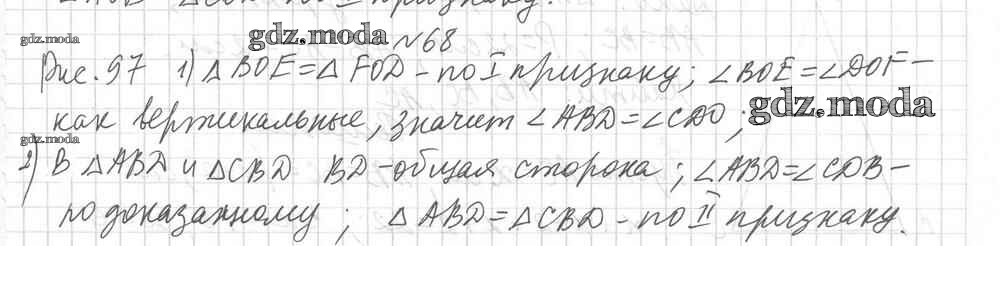 △АОВ △СОD по II признаку.
gdz.moda gdz.moda №68
Рис. 97 1) △ BOE = △ FOD - по I признаку; ∠BOE = ∠DOF -
gdz.moda
как вертикальные, значит ∠ABD = ∠CDO;
gdz.moda
2) В △ABD и △CBD BD - общая сторона; ∠ABD = ∠CDB -
по доказанному; △ABD = △CBD - по II признаку.